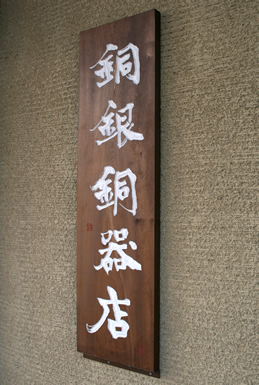 銅銀銅器店